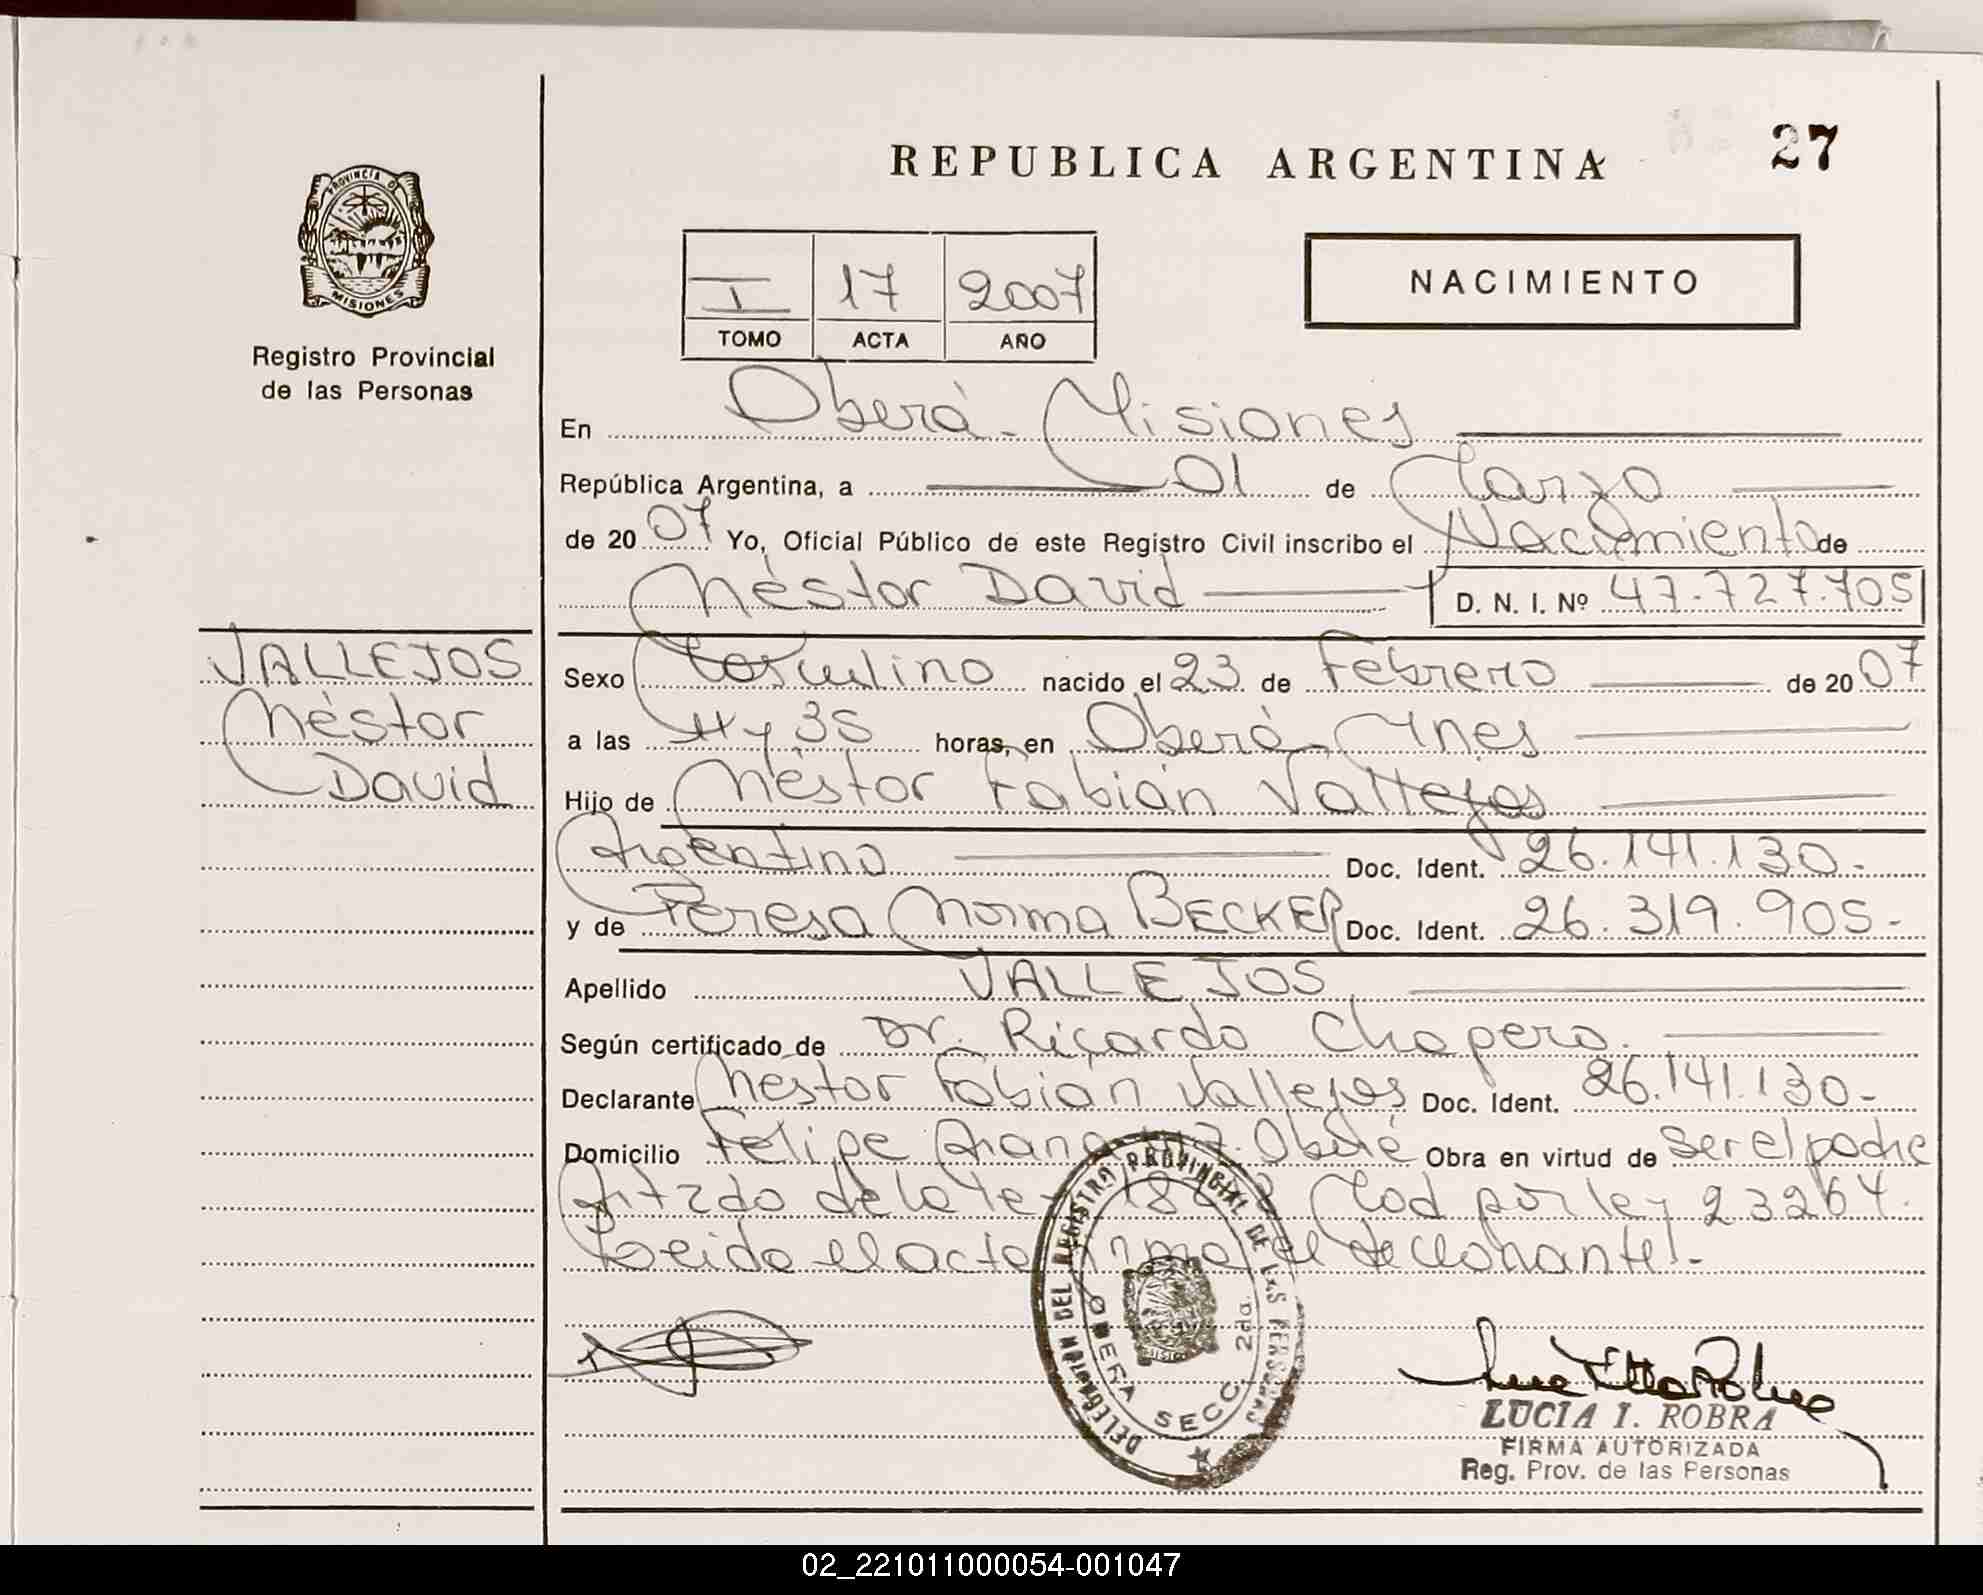 REPUBLICA ARGENTINA
27
PROVINCIA DE
MISIONES
Registro Provincial
de las Personas
I 17 2007
TOMO ACTA AÑO
NACIMIENTO
En Oberá - Misiones
República Argentina, a 01 de Marzo
de 2007 Yo, Oficial Público de este Registro Civil inscribo el Nacimiento de
Néstor David D. N. I. Nº 47.727.705
VALLEJOS
Néstor
David
Sexo Masculino nacido el 23 de Febrero de 2007
a las 11 y 35 horas, en Oberá Mnes
Hijo de Néstor Fabián Vallejos
Argentino Doc. Ident. 26.141.130.-
y de Teresa Norma BECKER Doc. Ident. 26.319.905.-
Apellido VALLEJOS
Según certificado de Dr. Ricardo Chapero.
Declarante Nestor Fabián Vallejos Doc. Ident. 26.141.130.-
Domicilio Felipe Oberá Obra en virtud de ser el padre
de la ley Mod por ley 23264.
Leido el acta firma el declarante.-
DELEGACION DEL REGISTRO PROVINCIAL DE LAS PERSONAS
OBERA SECC. 2da.
LUCIA I. ROBRA
FIRMA AUTORIZADA
Reg. Prov. de las Personas
02_221011000054-001047